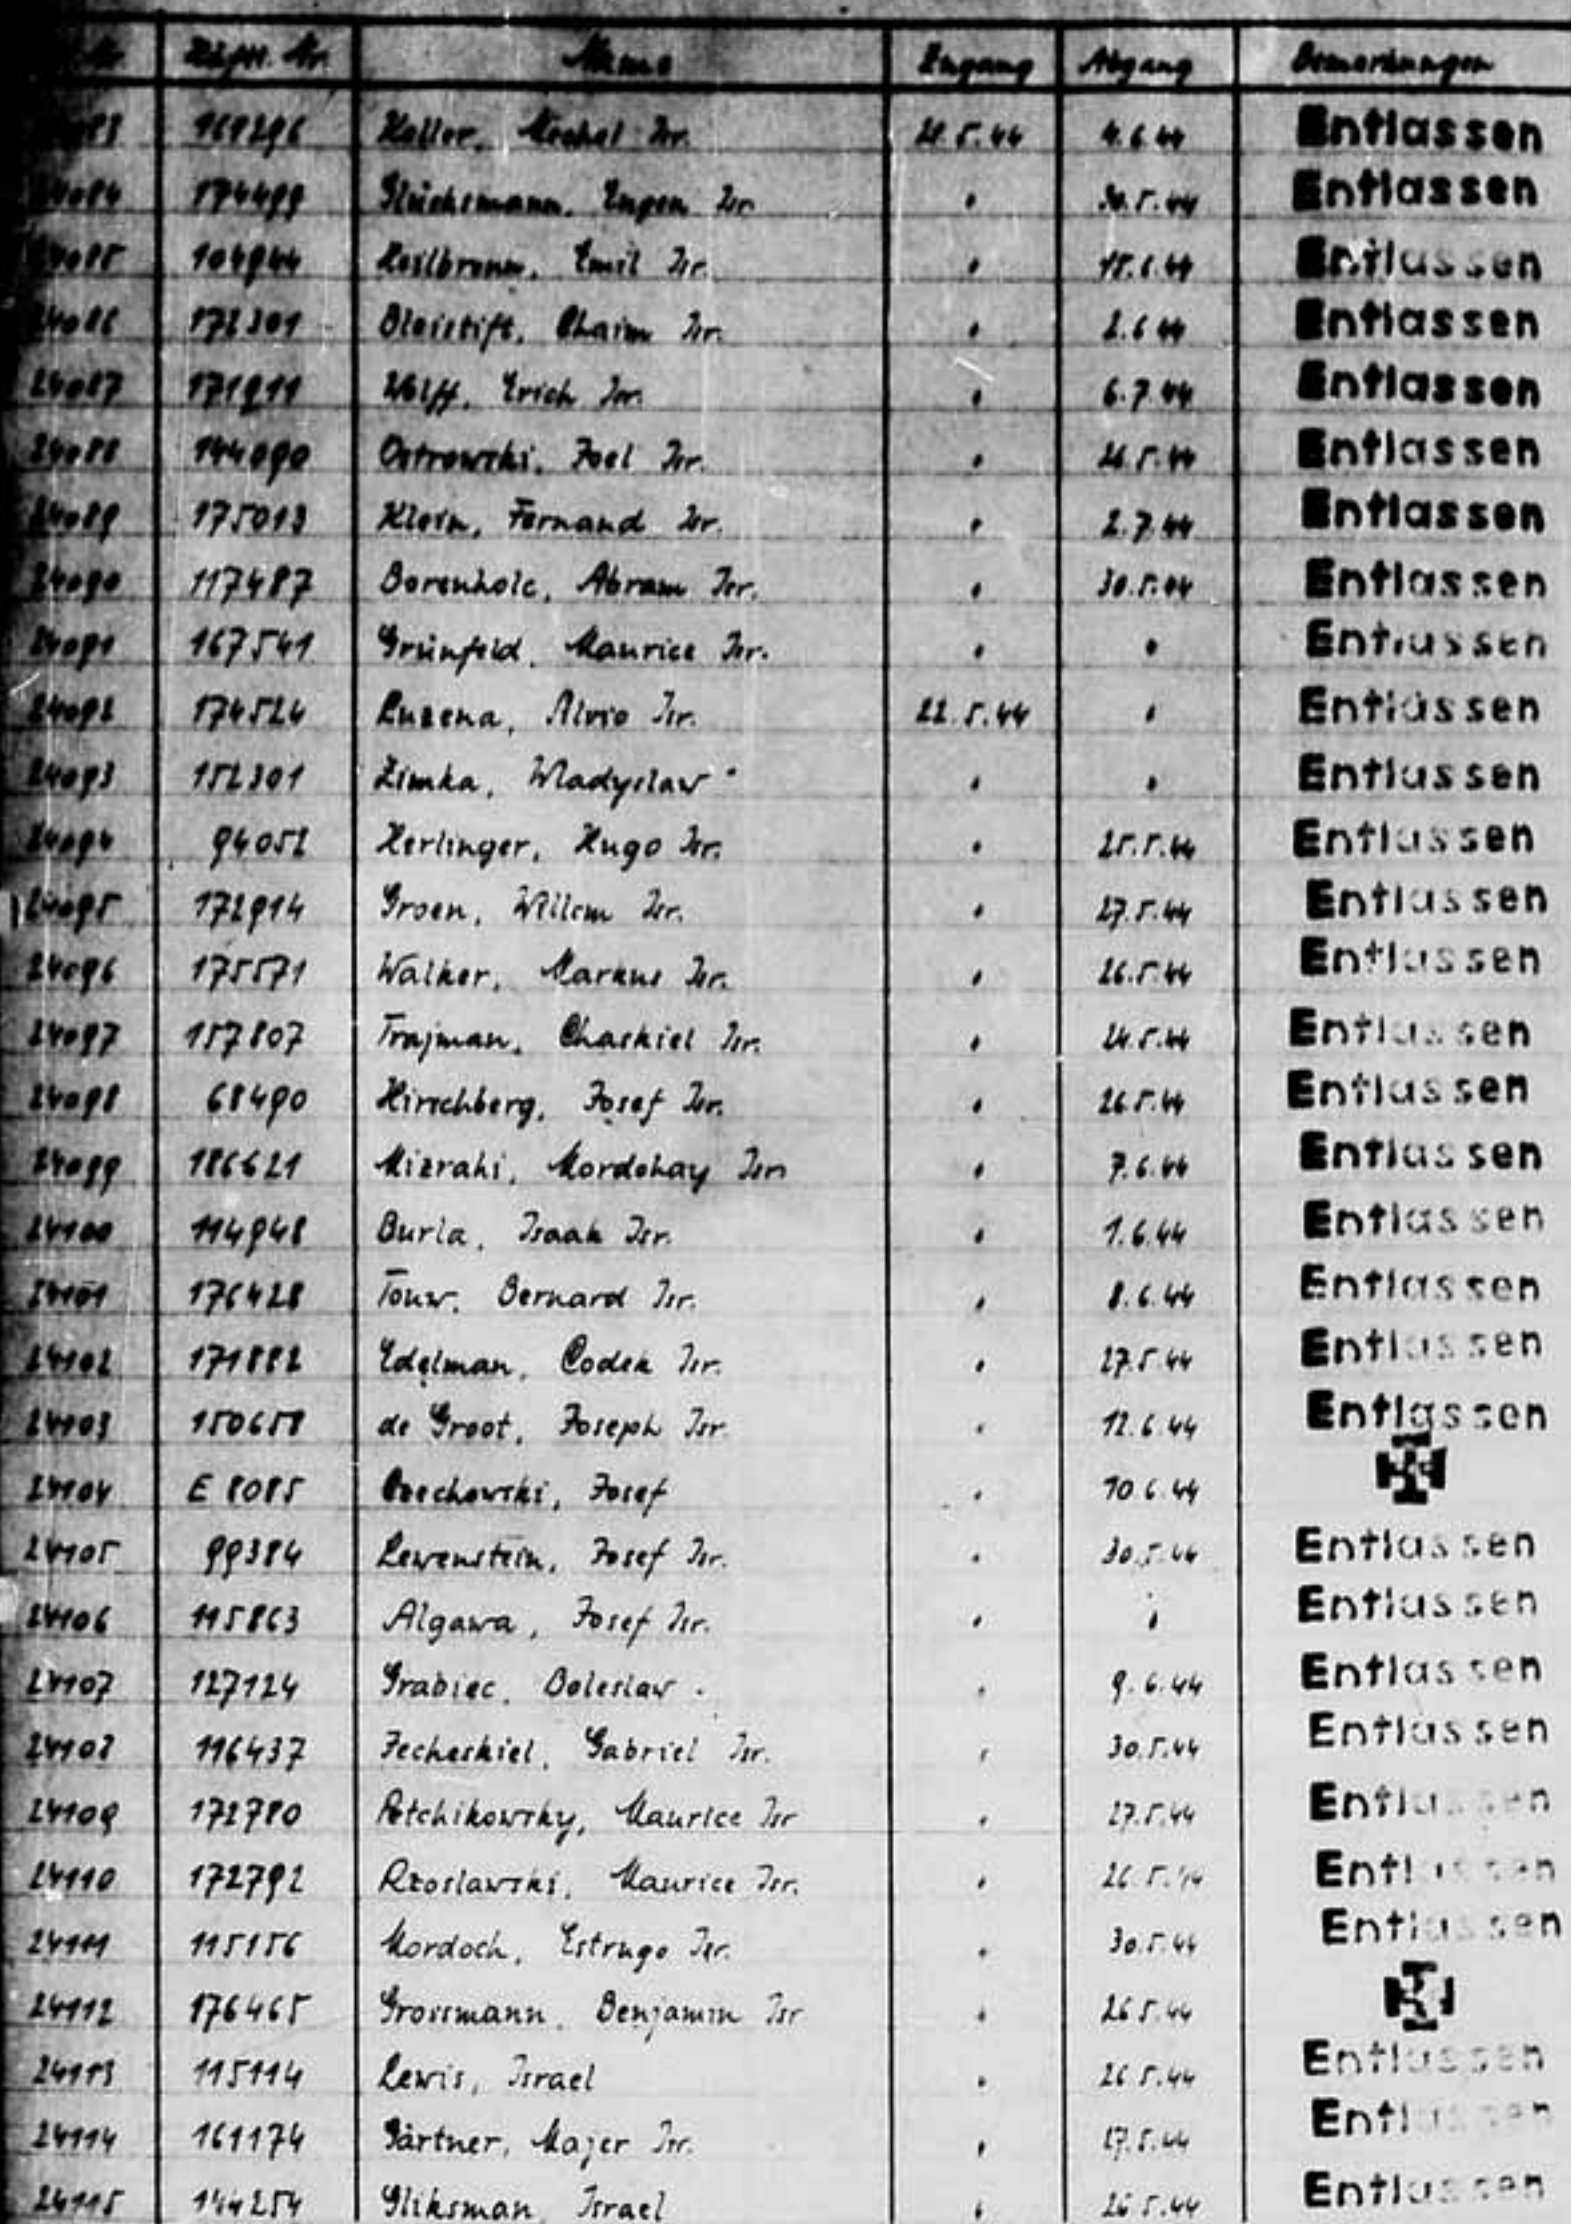 Nr. Häftl. Nr. Name Zugang Abgang Bemerkungen
169296 Haller, Mechel Isr. 21.5.44 4.6.44 Entlassen
24084 174499 Glücksmann, Eugen Isr. " 30.5.44 Entlassen
24085 104944 Heilbronn, Emil Isr. " Entlassen
24086 172301 Bleistift, Chaim Isr. " 2.6.44 Entlassen
24087 171911 Wolff, Erich Isr. " 6.7.44 Entlassen
24088 144090 Ostrowski, Joel Isr. " 26.5.44 Entlassen
24089 175013 Klein, Fernand Isr. " 2.7.44 Entlassen
24090 117487 Borenholc, Abram Isr. " 30.5.44 Entlassen
24091 167541 Grünfeld, Maurice Isr. " " Entlassen
24092 174524 Luzena, Alvio Isr. 22.5.44 " Entlassen
24093 152301 Zimka, Wladyslaw " " Entlassen
24094 94052 Herlinger, Hugo Isr. " 25.5.44 Entlassen
24095 172914 Groen, Willem Isr. " 27.5.44 Entlassen
24096 175571 Walker, Markus Isr. " 26.5.44 Entlassen
24097 157807 Trajman, Chaskiel Isr. " 24.5.44 Entlassen
24098 68490 Hirschberg, Josef Isr. " 26.5.44 Entlassen
24099 186621 Mizrahi, Mordohay Isr. " 7.6.44 Entlassen
24100 114948 Burla, Isaak Isr. " 1.6.44 Entlassen
24101 176428 Touw, Bernard Isr. " 8.6.44 Entlassen
24102 171882 Edelman, Codek Isr. " 27.5.44 Entlassen
24103 150658 de Groot, Joseph Isr. " 12.6.44 Entlassen
24104 E 8085 Orechowski, Josef " 10.6.44
24105 99384 Lewenstein, Josef Isr. " 30.5.44 Entlassen
24106 115863 Algawa, Josef Isr. " " Entlassen
24107 127124 Grabiec, Boleslaw " 9.6.44 Entlassen
24108 116437 Jecheskiel, Gabriel Isr. " 30.5.44 Entlassen
24109 172780 Petchikowsky, Maurice Isr " 27.5.44 Entlassen
24110 172792 Rzoslawski, Maurice Isr. " 26.5.44 Entlassen
24111 115156 Mordoch, Estrugo Isr. " 30.5.44 Entlassen
24112 176465 Grossmann, Benjamin Isr " 26.5.44
24113 115114 Lewis, Israel " 26.5.44 Entlassen
24114 161174 Gärtner, Majer Isr. " 27.5.44 Entlassen
24115 144254 Gliksman, Israel " 26.5.44 Entlassen